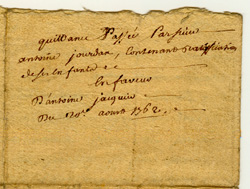 quittance Passée Par sieur
antoine jourdan, contenant Ratiffication
de ses enfants
En faveur
D'antoine jacquin
Du 12e aoust 1762